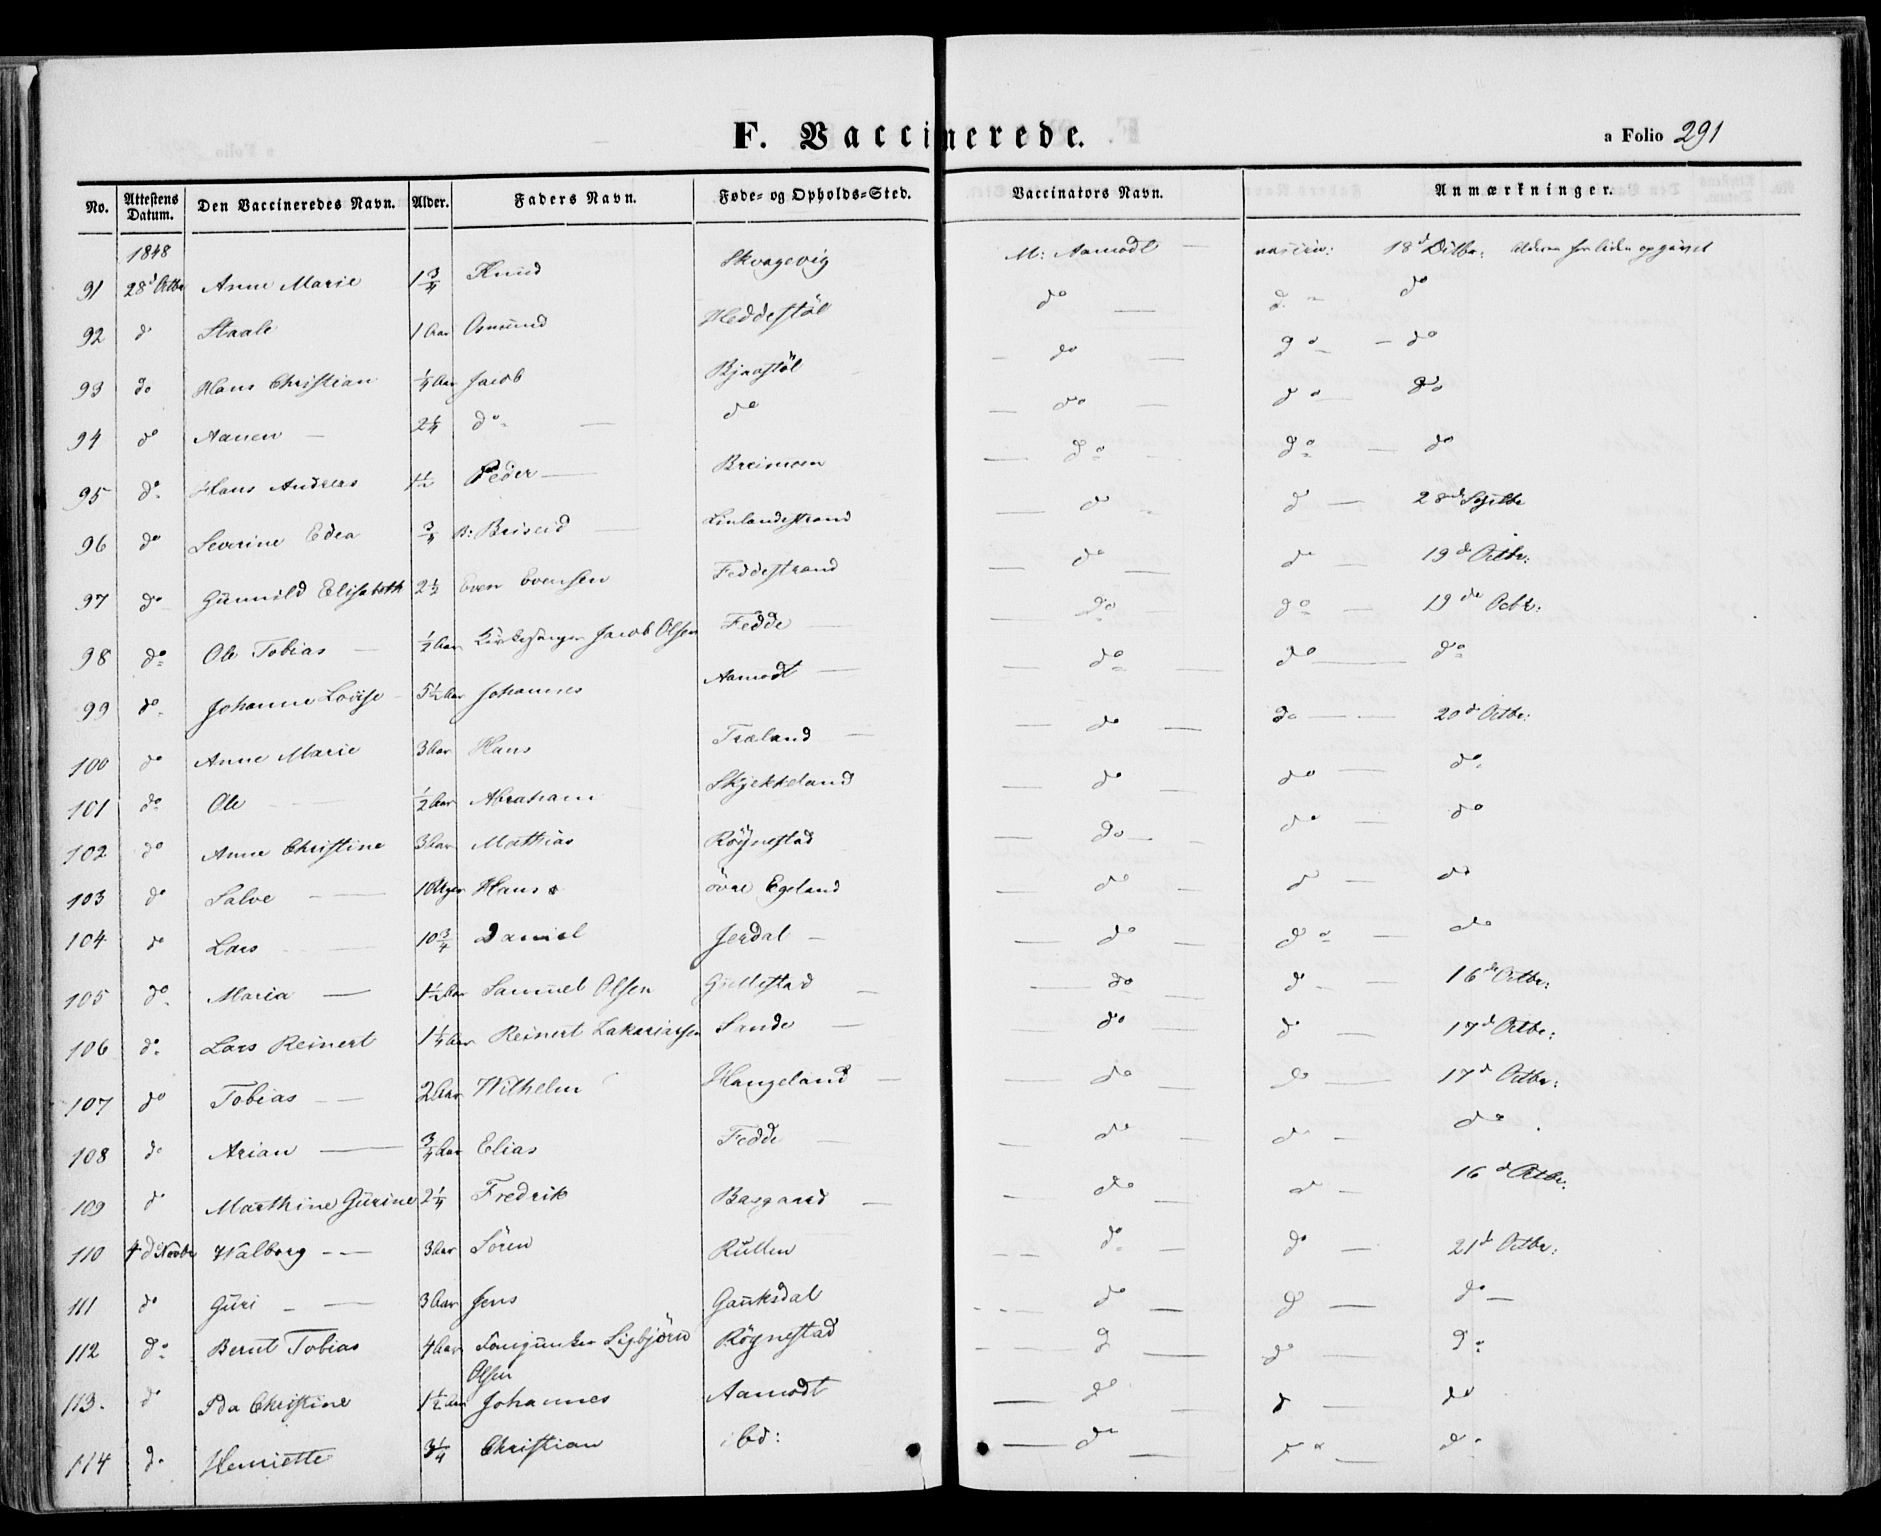 F. Vaccinerede.
a Folio 291
No. Attestens Datum. Den Vaccineredes Navn. Alder. Faders Navn. Føde- og Opholds-Sted. Vaccinators Navn. Anmærkninger.
1848
91 28d Octbr Anne Marie 1 3/4 Knud Skragevig M: Aamodt 18d Octbr:
92 do Staale 1 Aar Osmund Heddestöl do do do
93 do Hans Christian 1/4 Aar Jacob Bjaastöl do do do
94 do Aanen 2 1/4 do do do do do
95 do Hans Andreas 1 1/2 Peder Breimoen do do do
96 do Severine Edea 3/4 B: Briseid Linlandsstrand do do 28d Septbr
97 do Gunnild Elisabeth 2 1/2 Even Evensen Feddestrand do do 19de Octbr:
98 do Ole Tobias 1/2 Aar Kirkesanger Jacob Olsen Fedde do do 19de Octbr:
99 do Johanne Lovise 5 1/2 Aar Johannes Aamodt do do do
100 do Anne Marie 3 Aar Hans Træland do do 20d Octbr:
101 do Ole 1/2 Aar Abraham Skjekkeland do do do
102 do Anne Christine 3 Aar Mathias Røgnestad do do do
103 do Salve 10 Uger Hans övre Egeland do do do
104 do Lars 10 3/4 Daniel Jerdal do do do
105 do Maria 1 1/2 Aar Samuel Olsen Gullestad do do 16de Octbr:
106 do Lars Reinert 1 1/4 Aar Reinert Zakariassen Sande do do 17d Octbr:
107 do Tobias 2 Aar Wilhelm Haugeland do do 17d Octbr:
108 do Arian 3/4 Aar Elias Fedde do do do
109 do Marthine Gurine 2 1/4 Fredrik Basgaard do do 16d Octbr.
110 4d Novbr Walborg 3 Aar Sören Rullen do do 21d Octbr:
111 do Guri 3 Aar Jens Gauksdal do do do
112 do Bernt Tobias 4 Aar Sigbjörn Røgnestad do do do
Olsen
113. do Ida Christine 1 1/2 Aar Johannes Aamodt do do do
114 do Henriette 3 1/4 Christian ibd: do do do